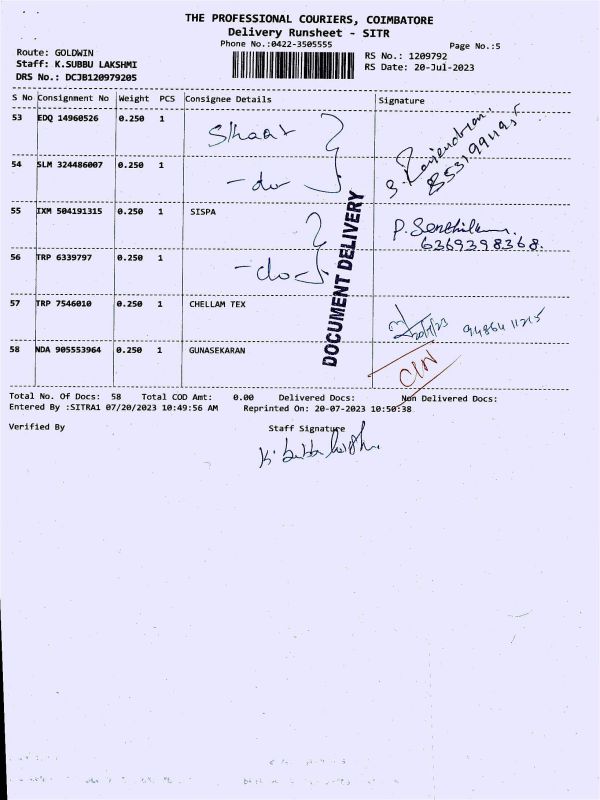 THE PROFESSIONAL COURIERS, COIMBATORE
Delivery Runsheet - SITR
Phone No.:0422-3505555
Page No.:5
Route: GOLDWIN
RS No.: 1209792
Staff: K.SUBBU LAKSHMI
RS Date: 20-Jul-2023
DRS No.: DCJB120979205
S No Consignment No Weight PCS Consignee Details Signature
53 EDQ 14960526 0.250 1
54 SLM 324486007 0.250 1 -do
55 IXM 504191315 0.250 1 SISPA P. Senthilkum.
6369398368.
56 TRP 6339797 0.250 1 -do-
57 TRP 7546010 0.250 1 CHELLAM TEX
58 NDA 905553964 0.250 1 GUNASEKARAN
DOCUMENT DELIVERY
Total No. Of Docs: 58 Total COD Amt: 0.00 Delivered Docs: Non Delivered Docs:
Entered By :SITRA1 07/20/2023 10:49:56 AM Reprinted On: 20-07-2023 10:50:38
Verified By Staff Signature